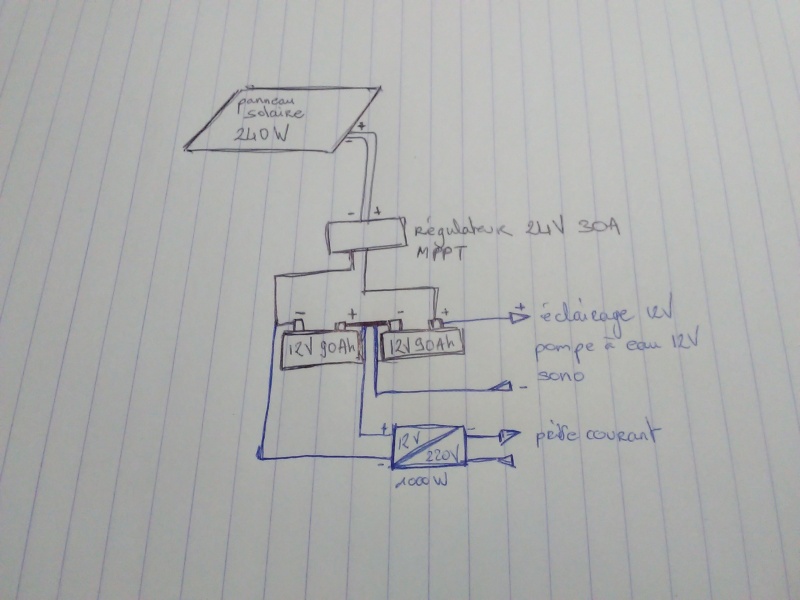 panneau
solaire
240W
+
-
- +
régulateur 24V 30A
MPPT
- + - + +
12V 90Ah 12V 90Ah
éclairage 12V
pompe à eau 12V
sono
-
+ -
12V
220V
petit courant
-
1000W